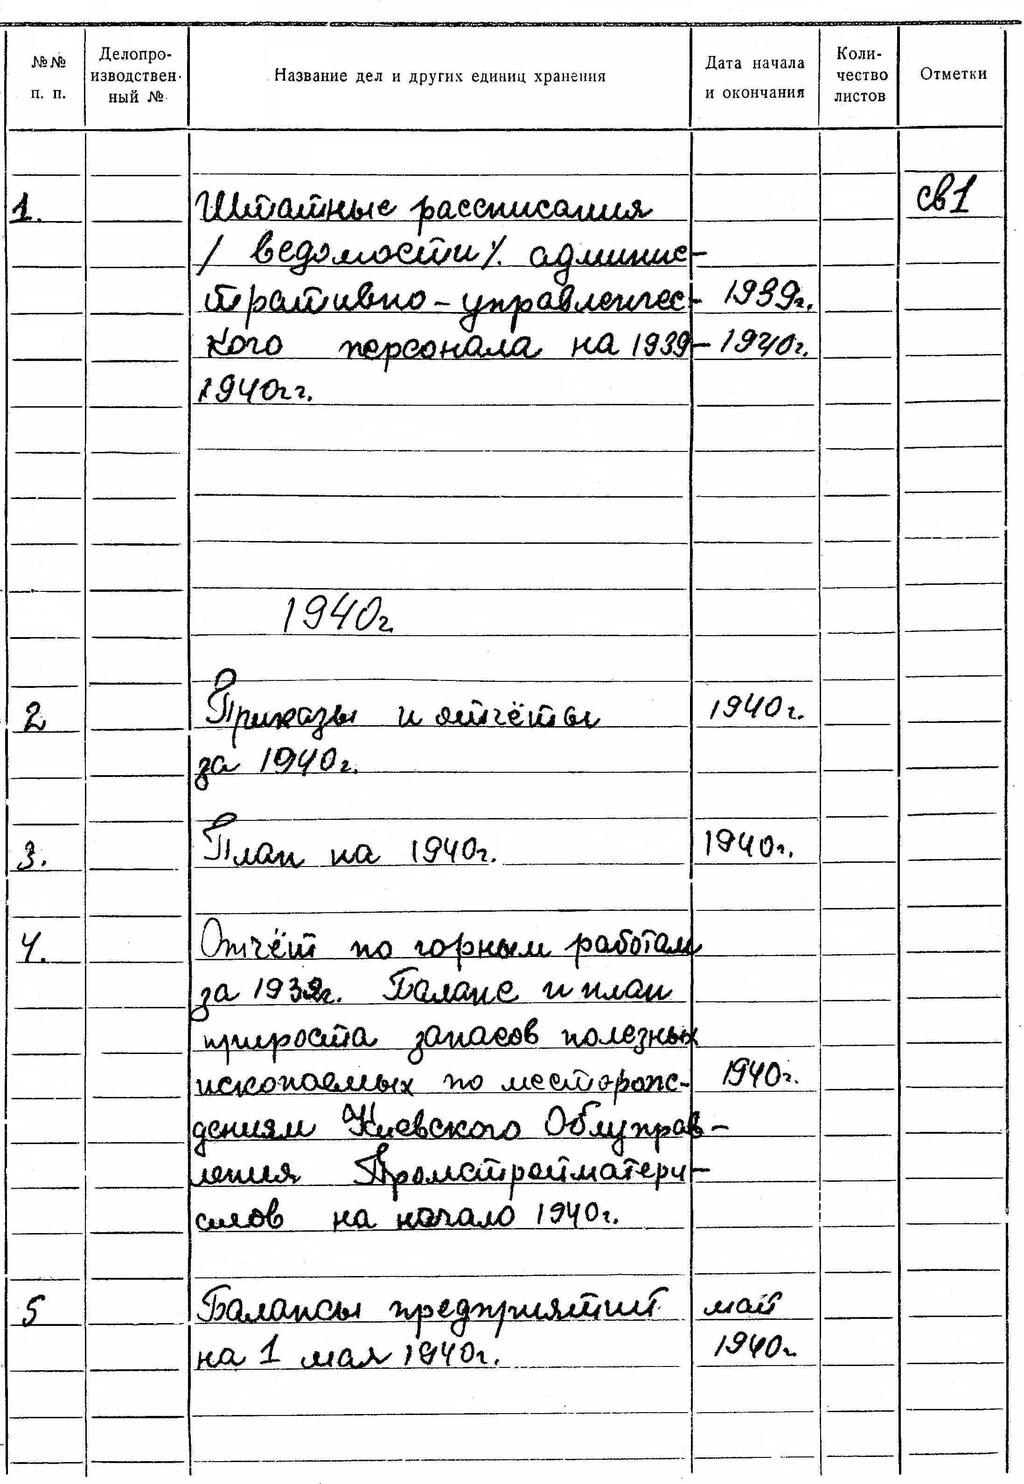 №№ п. п.
Делопро-
изводствен-
ный №
Название дел и других единиц хранения
Дата начала
и окончания
Коли-
чество
листов
Отметки
1. Штатные рассписания св1
/ ведомости/. админис-
тративно-управленчес- 1939г.
кого персонала на 1939- 1940г.
1940гг.
1940г.
2 Приказы и отчёты 1940г.
за 1940г.
3. План на 1940г. 1940г.
4. Отчёт по горным работам
за 1939г. Баланс и план
прироста запасов полезных
ископаемых по месторож- 1940г.
дениям Киевского Облуправ-
ления Промстройматери-
алов на начало 1940г.
5 Балансы предприятий май
на 1 мая 1940г. 1940г.